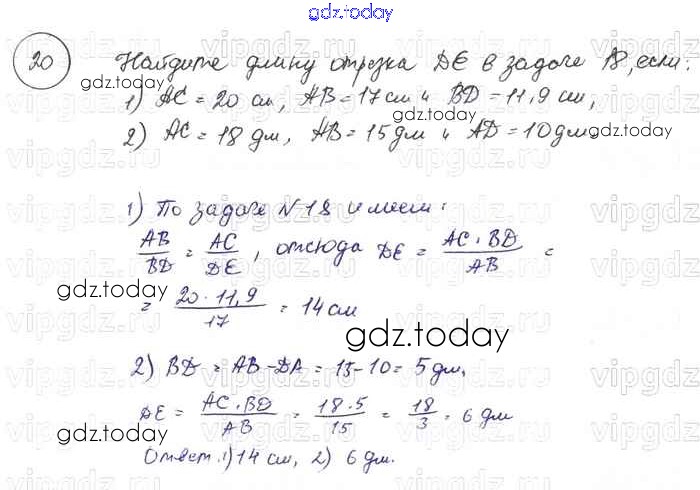 gdz.today
20 Найдите длину отрезка DE в задаче 18, если:
gdz.today
1) AC = 20 см, AB = 17 см и BD = 11,9 см,
2) AC = 18 дм, AB = 15 дм и AD = 10 дм.
gdz.today
1) По задаче N 18 имеем:
AB/BD = AC/DE, отсюда DE = AC·BD/AB =
gdz.today
= 20·11,9/17 = 14 см
gdz.today
2) BD = AB-DA = 15-10 = 5 дм,
gdz.today
DE = AC·BD/AB = 18·5/15 = 18/3 = 6 дм
gdz.today
Ответ: 1) 14 см, 2) 6 дм.